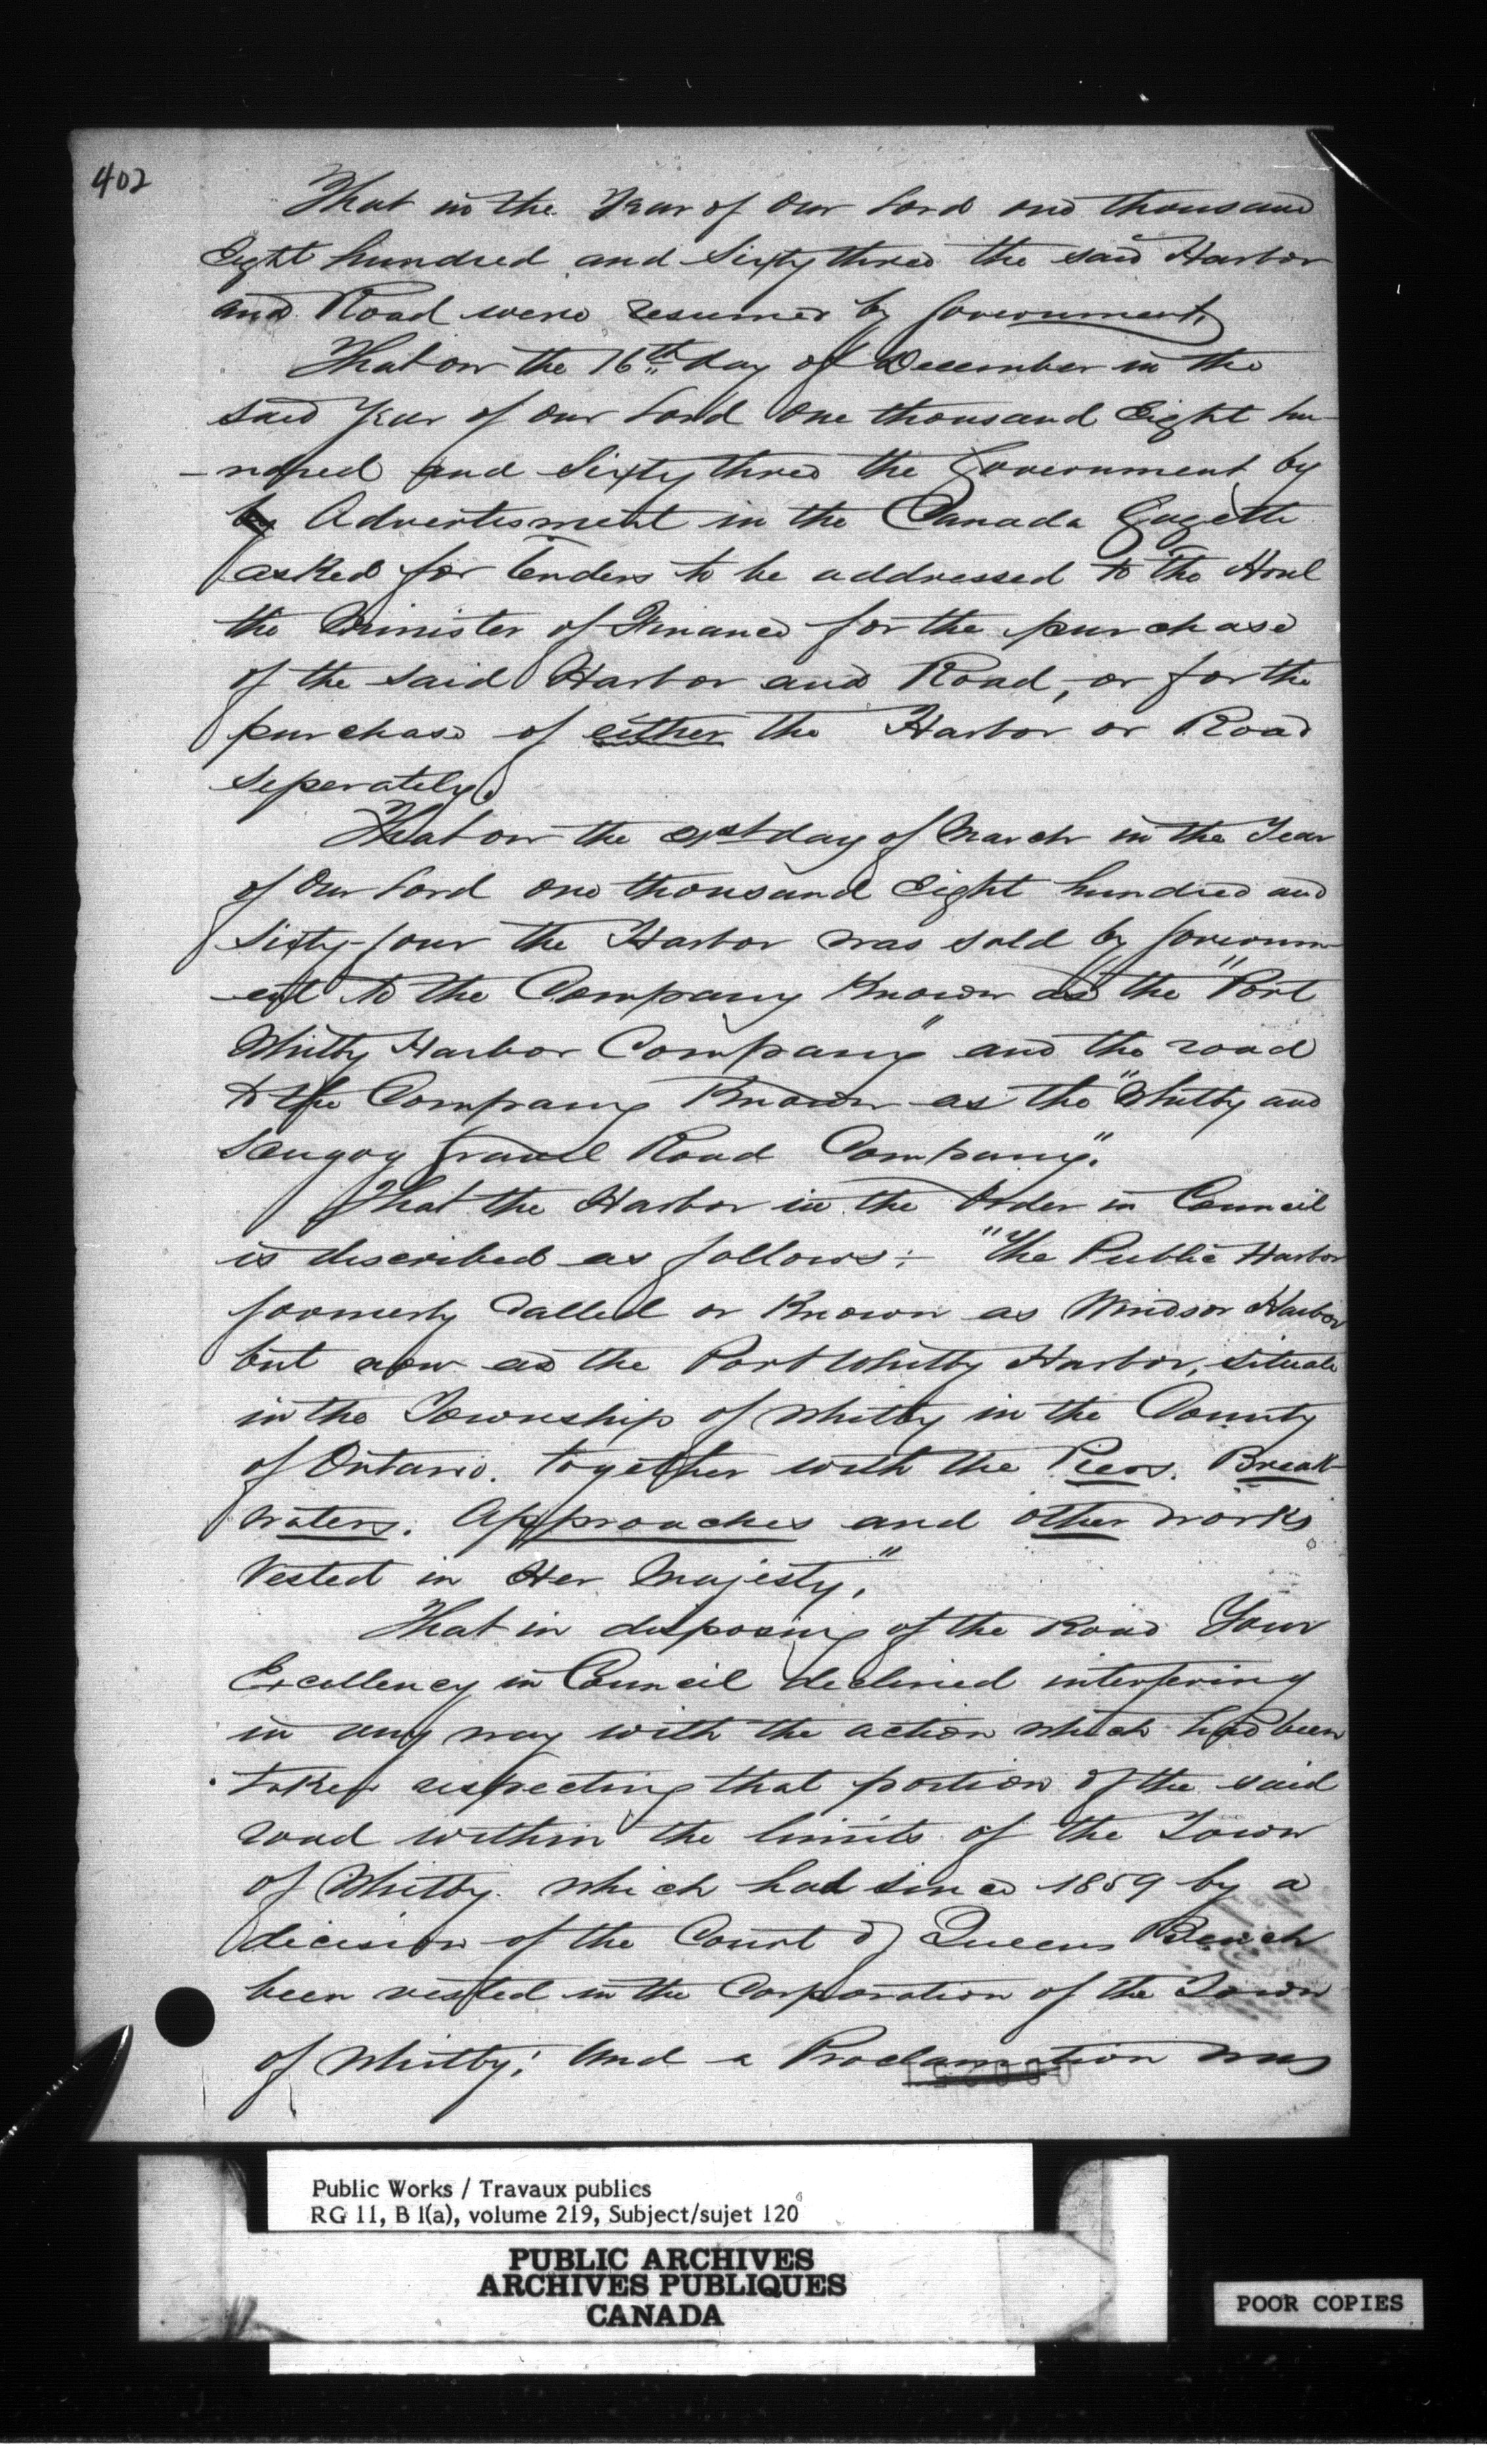 402
That in the Year of Our Lord one thousand
Eight hundred and Sixty three the said Harbor
and Road were resumed by Government,
That on the 16th day of December in the
said Year of Our Lord One thousand Eight hu-
-ndred and Sixty three the Government by
by Advertisment in the Canada Gazette
asked for tenders to be addressed to the Honl
the Minister of Finance for the purchase
of the said Harbor and Road, or for the
purchase of either the Harbor or Road
seperately.
That on the day of March in the Year
of Our Lord one thousand Eight hundred and
Sixty-four the Harbor was sold by Governm-
-ent to the Company Known as the "Port
Whitby Harbor Company" and the road
to the Company Known as the "Whitby and
Scugog Gravel Road Company."
That the Harbor in the Order in Council
is described as follows: "The Public Harbor
formerly Called or Known as Windsor Harbor
but now as the Port Whitby Harbor, situate
in the Township of Whitby in the County
of Ontario. together with the Piers. Break-
waters. Approaches and other works
Vested in Her Majesty,"
That in disposing of the Road Your
Excellency in Council declined interfering
in any way with the action which had been
taken respecting that portion of the said
road within the limits of the Town
of Whitby. which had since 1859 by a
decision of the Court of Queens Bench
been vested in the Corporation of the Town
of Whitby; And a Proclamation was
Public Works / Travaux publics
RG 11, B 1(a), volume 219, Subject/sujet 120
PUBLIC ARCHIVES
ARCHIVES PUBLIQUES
CANADA
POOR COPIES